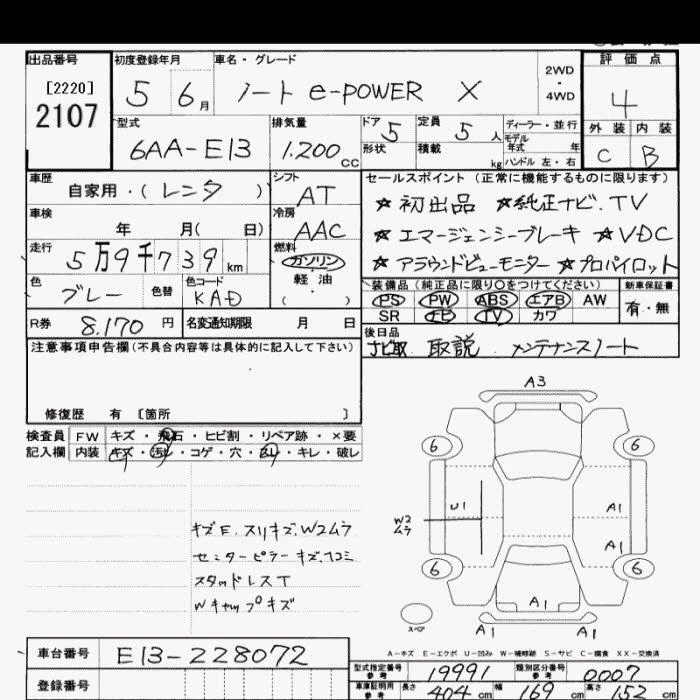 出品番号
[2220]
2107
初度登録年月
5 6月
車名・グレード
ノート e-POWER X
2WD
・
4WD
評価点
4
外装 内装
C B
型式
6AA-E13
排気量
1.200cc
ドア 5
形状
定員 5人
積載 kg
ディーラー・並行
モデル
年式 年
ハンドル 左・右
車歴
自家用・(レンタ)
シフト
AT
車検
年 月( 日)
冷房
AAC
走行
5万9千739km
燃料
ガソリン
軽油
( ・ )
色
ブレー
色替
色コード
KAD
R券
8,170円
名変通知期限 月 日
セールスポイント(正常に機能するものに限ります)
★初出品 ★純正ナビ.TV
★エマージェンシーブレーキ ★VDC
★アラウンドビューモニター ★プロパイロット
装備品(純正品に限り○をつけてください)
PS PW ABS エアB AW
SR ナビ TV カワ
新車保証書
有・無
後日品
ナビ取 取説 メンテナンスノート
注意事項申告欄(不具合内容等は具体的に記入して下さい)
修復歴 有 [箇所 ]
検査員
記入欄
FW キズ・飛石・ヒビ割・リペア跡・×要
内装 キズ・汚れ・コゲ・穴・スレ・キレ・破レ
キズE.スリキズ.W2ムラ
センターピラーキズ.凹コミ
スタッドレスT
Wキャップキズ
A3
6 6
U1
A1
W2
ムラ
A1
6 6
A1
スペア
A1 A1
A-キズ E-エクボ U-凹み W-補修跡 S-サビ C-腐食 XX-交換済
車台番号
E13-228072
登録番号
型式指定番号
参考
19991
類別区分番号
参考
0007
車庫証明用
参考
長さ 404cm 幅 169cm 高さ 152cm